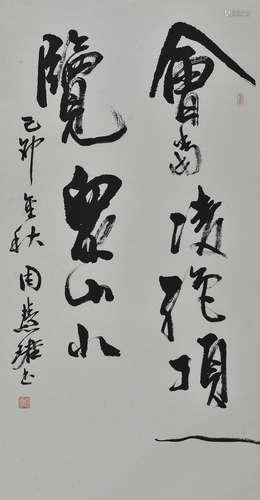 會當凌絕頂一
覽眾山小
己卯金秋周慧珺書